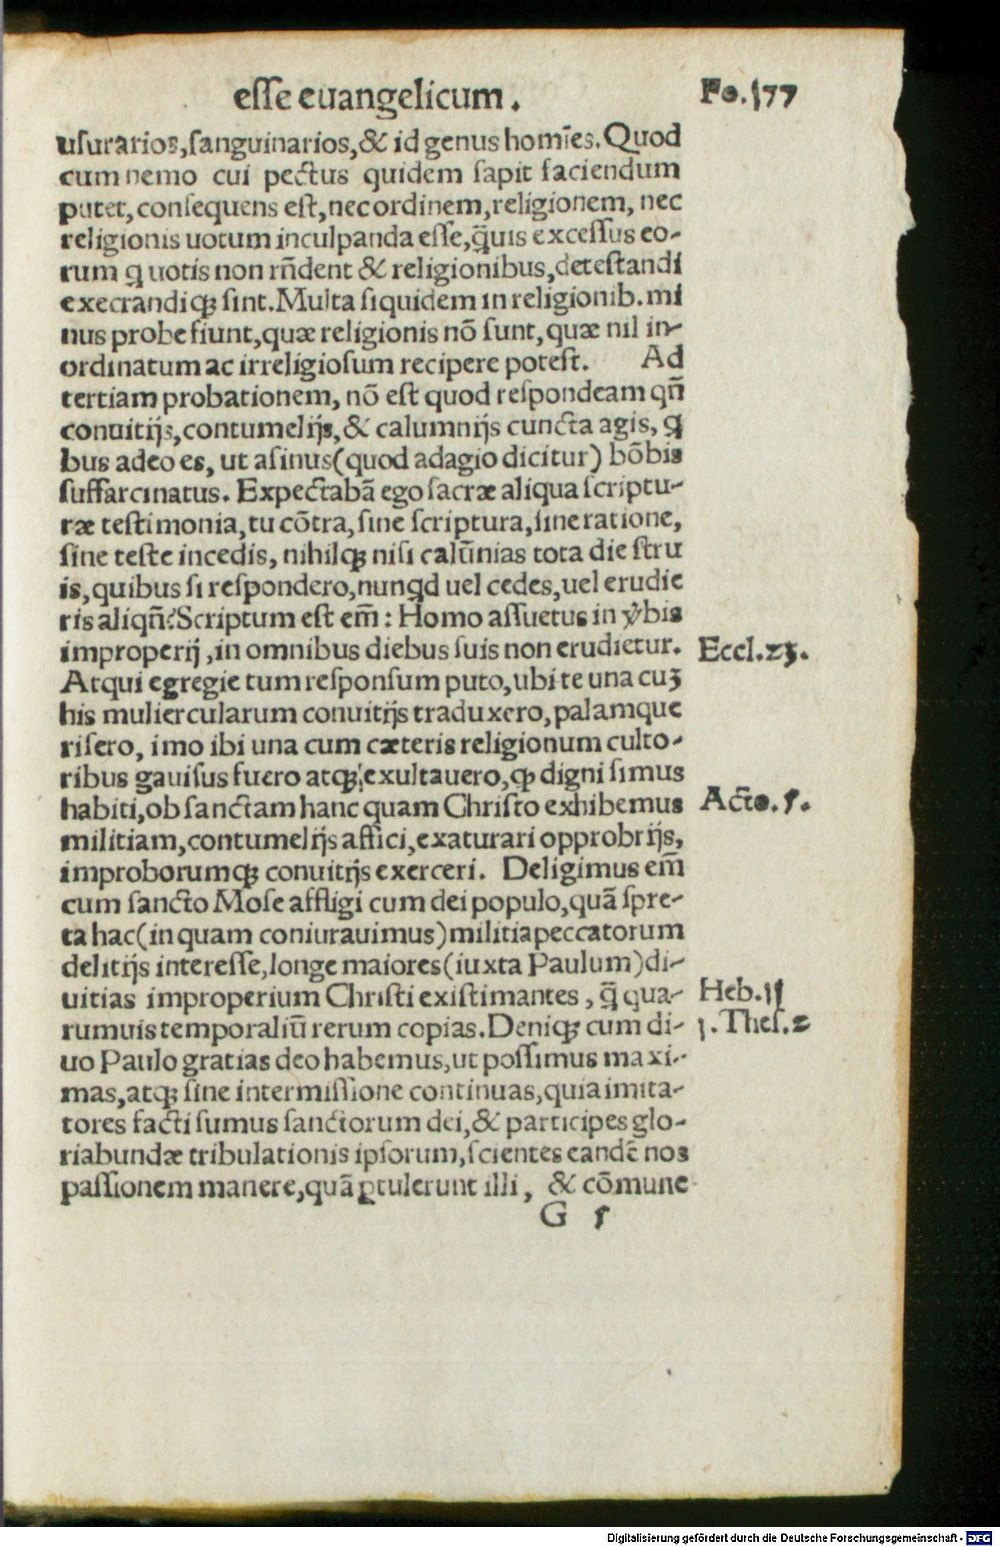 esse euangelicum. Fo. 177
usurarios, sanguinarios, & id genus homīes. Quod
cum nemo cui pectus quidem sapit faciendum
putet, consequens est, nec ordinem, religionem, nec
religionis uotum inculpanda esse, q̃uis excessus eo-
rum q uotis non rñdent & religionibus, detestandi
execrandiq; sint. Multa siquidem in religionib. mi
nus probe fiunt, quæ religionis nō sunt, quæ nil in-
ordinatum ac irreligiosum recipere potest. Ad
tertiam probationem, nō est quod respondeam qñ
conuitijs, contumelijs, & calumnijs cuncta agis, q
bus adeo es, ut asinus (quod adagio dicitur) bōbis
suffarcinatus. Expectabā ego sacræ aliqua scriptu-
ræ testimonia, tu cōtra, sine scriptura, sine ratione,
sine teste incedis, nihilq; nisi calūnias tota die stru
is, quibus si respondero, nunqd uel cedes, uel erudie
ris aliqñ? Scriptum est em̄: Homo assuetus in ẏbis
improperij, in omnibus diebus suis non erudietur. Eccl. 23.
Atqui egregie tum responsum puto, ubi te una cuȝ
his muliercularum conuitijs traduxero, palamque
risero, imo ibi una cum cæteris religionum culto-
ribus gauisus fuero atq; exultauero, ꝙ digni simus
habiti, ob sanctam hanc quam Christo exhibemus Acto. 5.
militiam, contumelijs affici, exaturari opprobrijs,
improborumq; conuitijs exerceri. Deligimus em̄
cum sancto Mose affligi cum dei populo, quā spre-
ta hac (in quam coniurauimus) militia peccatorum
delitijs interesse, longe maiores (iuxta Paulum) di-
uitias improperium Christi existimantes, q̃ qua- Heb. 11
rumuis temporaliū rerum copias. Deniq; cum di- 1. Thes. 2
uo Paulo gratias deo habemus, ut possimus maxi-
mas, atq; sine intermissione continuas, quia imita-
tores facti sumus sanctorum dei, & participes glo-
riabundæ tribulationis ipsorum, scientes eandē nos
passionem manere, quā ꝑtulerunt illi, & cōmune
G 5
Digitalisierung gefördert durch die Deutsche Forschungsgemeinschaft - DFG